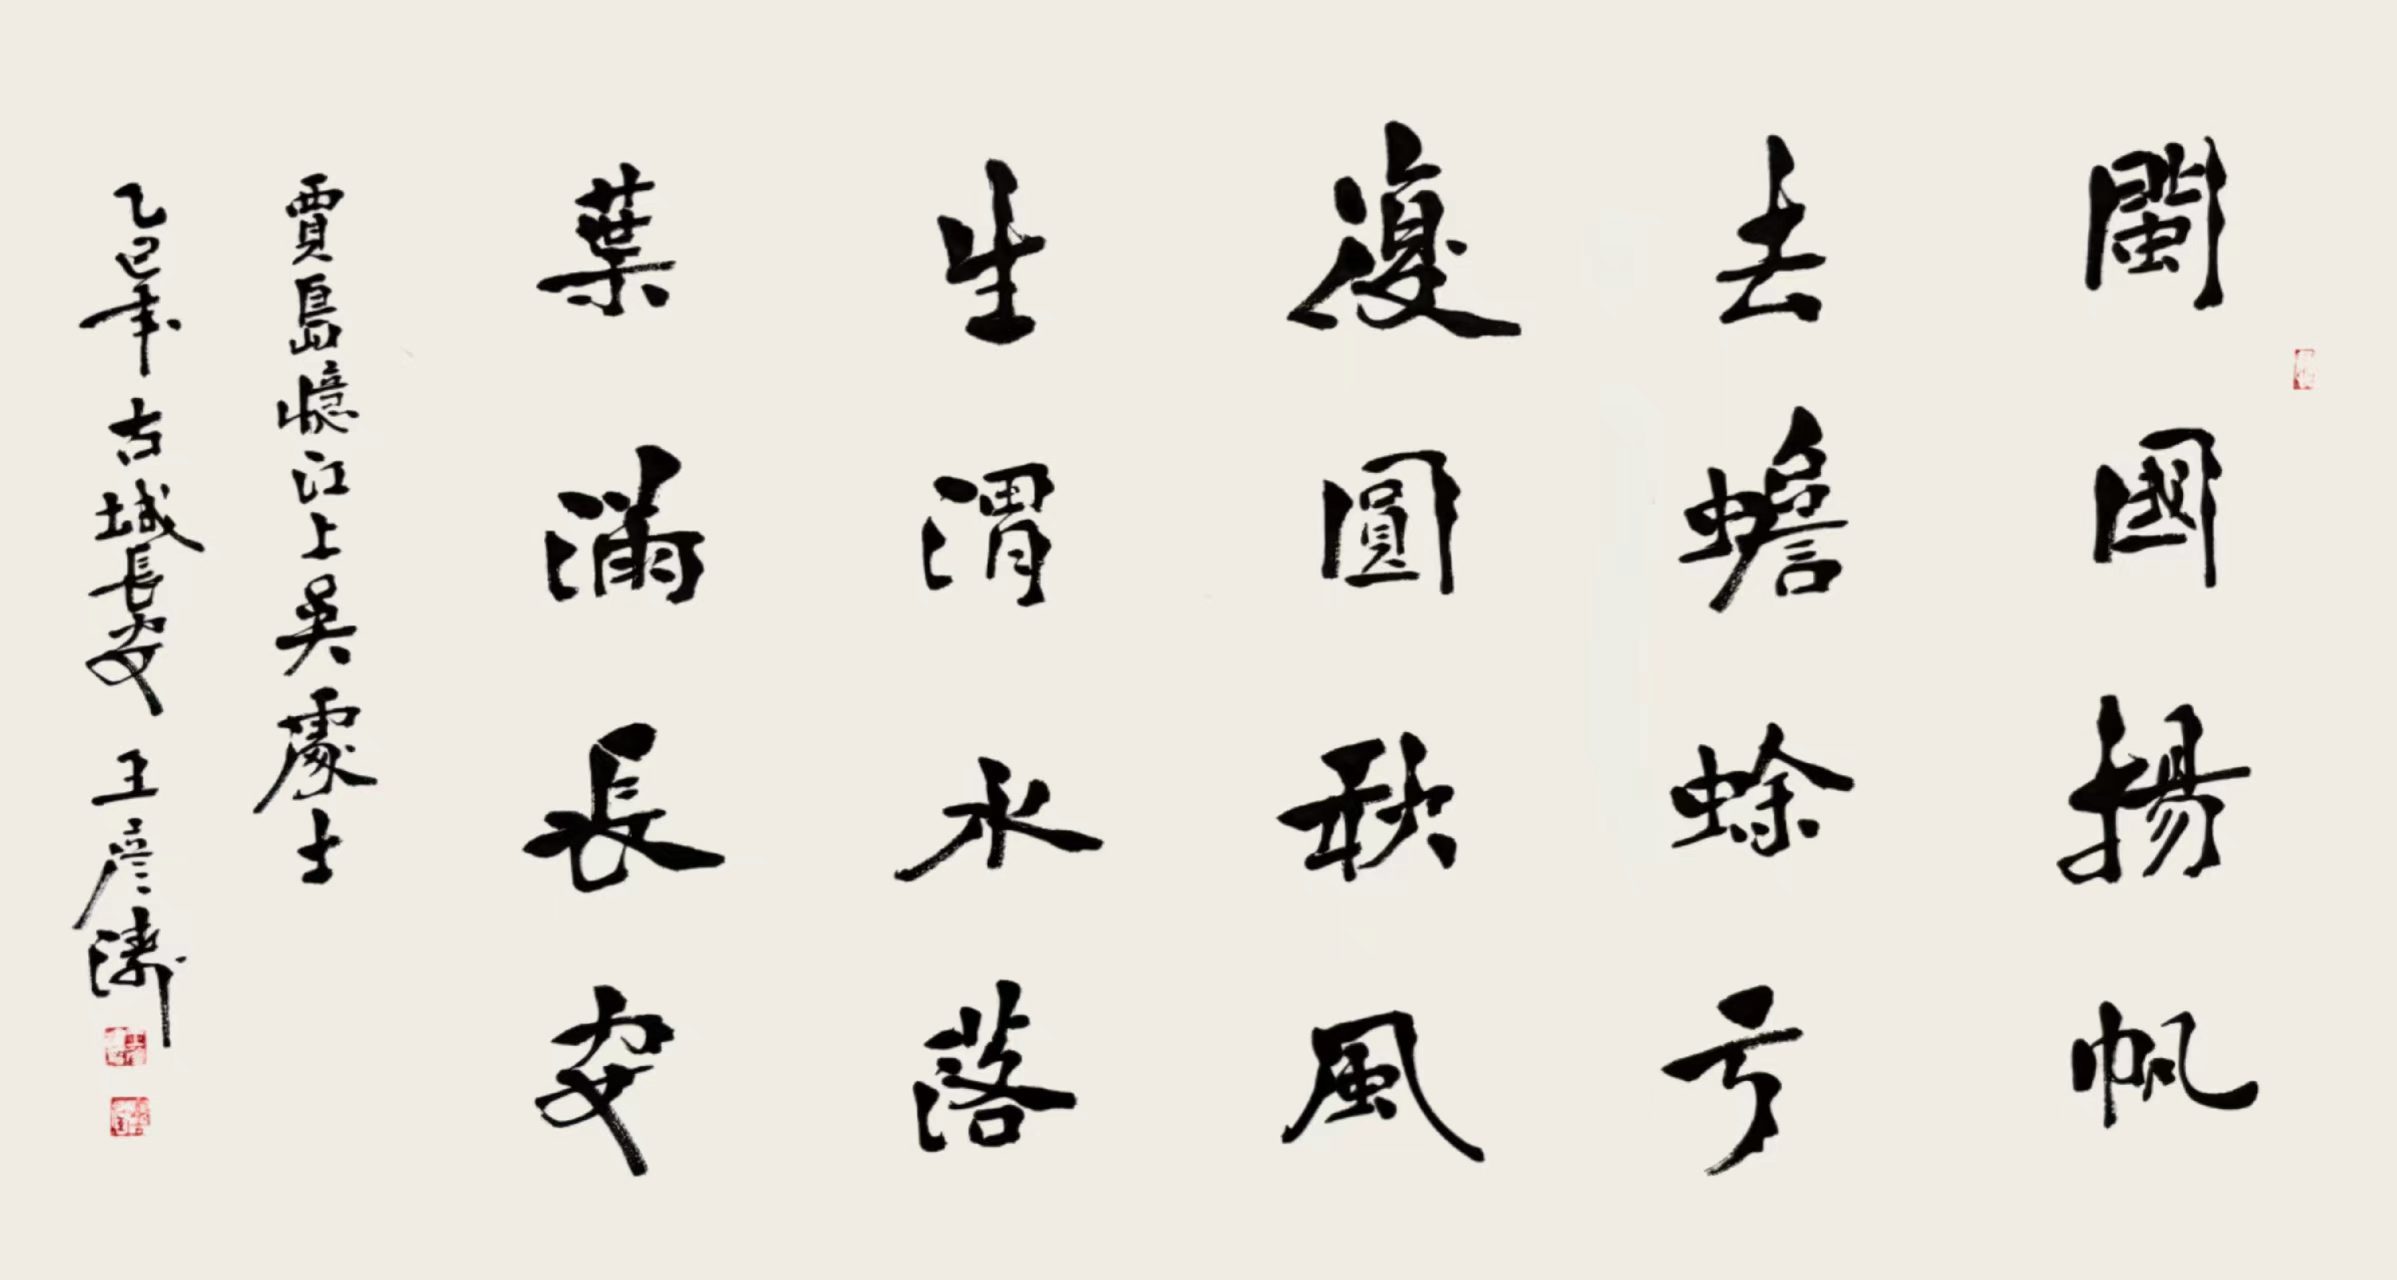 閩國揚帆
去蟾蜍虧
復圓秋風
生渭水落
葉滿長安
賈島憶江上吳處士
乙巳年古城長安王彥濤